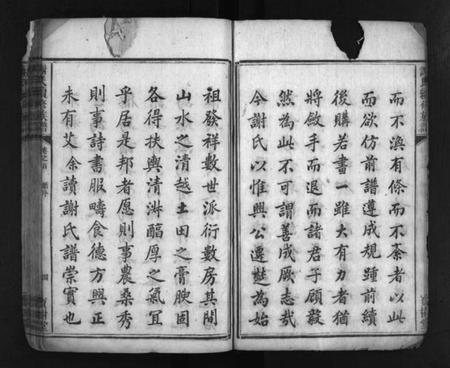 而不溟有條而不紊者以此
而欲仿前譜遵成規踵前績
後購若畫一雖大有力者猶
將斂手而退而諸君子顧毅
然為此不可謂善成厥志哉
今謝氏以惟興公遷楚為始
祖發祥數世派衍數房其間
山水之清越土田之膏腴固
各得扶輿清淋醞厚之氣宜
乎居是邦者愿則事農桑秀
則事詩書服疇食德方興正
未有艾余讀謝氏譜崇實也